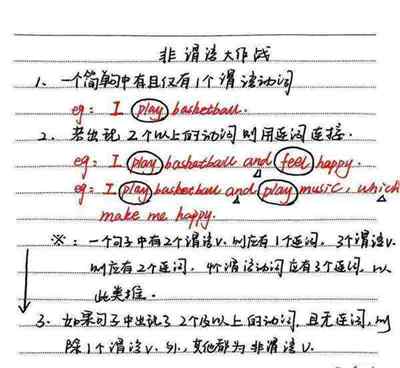 非谓语大作战
1、一个简单句中有且仅有1个谓语动词
eg: I play basketball.
2、若出现2个以上的动词则用连词连接.
eg: I play basketball and feel happy.
eg: I play basketball and play music, which
make me happy.
※: 一个句子中有2个谓语v.则应有1个连词, 3个谓语v.
则应有2个连词, 4个谓语动词应有3个连词, 以
此类推.
3、如果句子中出现了2个及以上的动词, 且无连词, 则
除1个谓语v.外, 其他都为非谓语v.